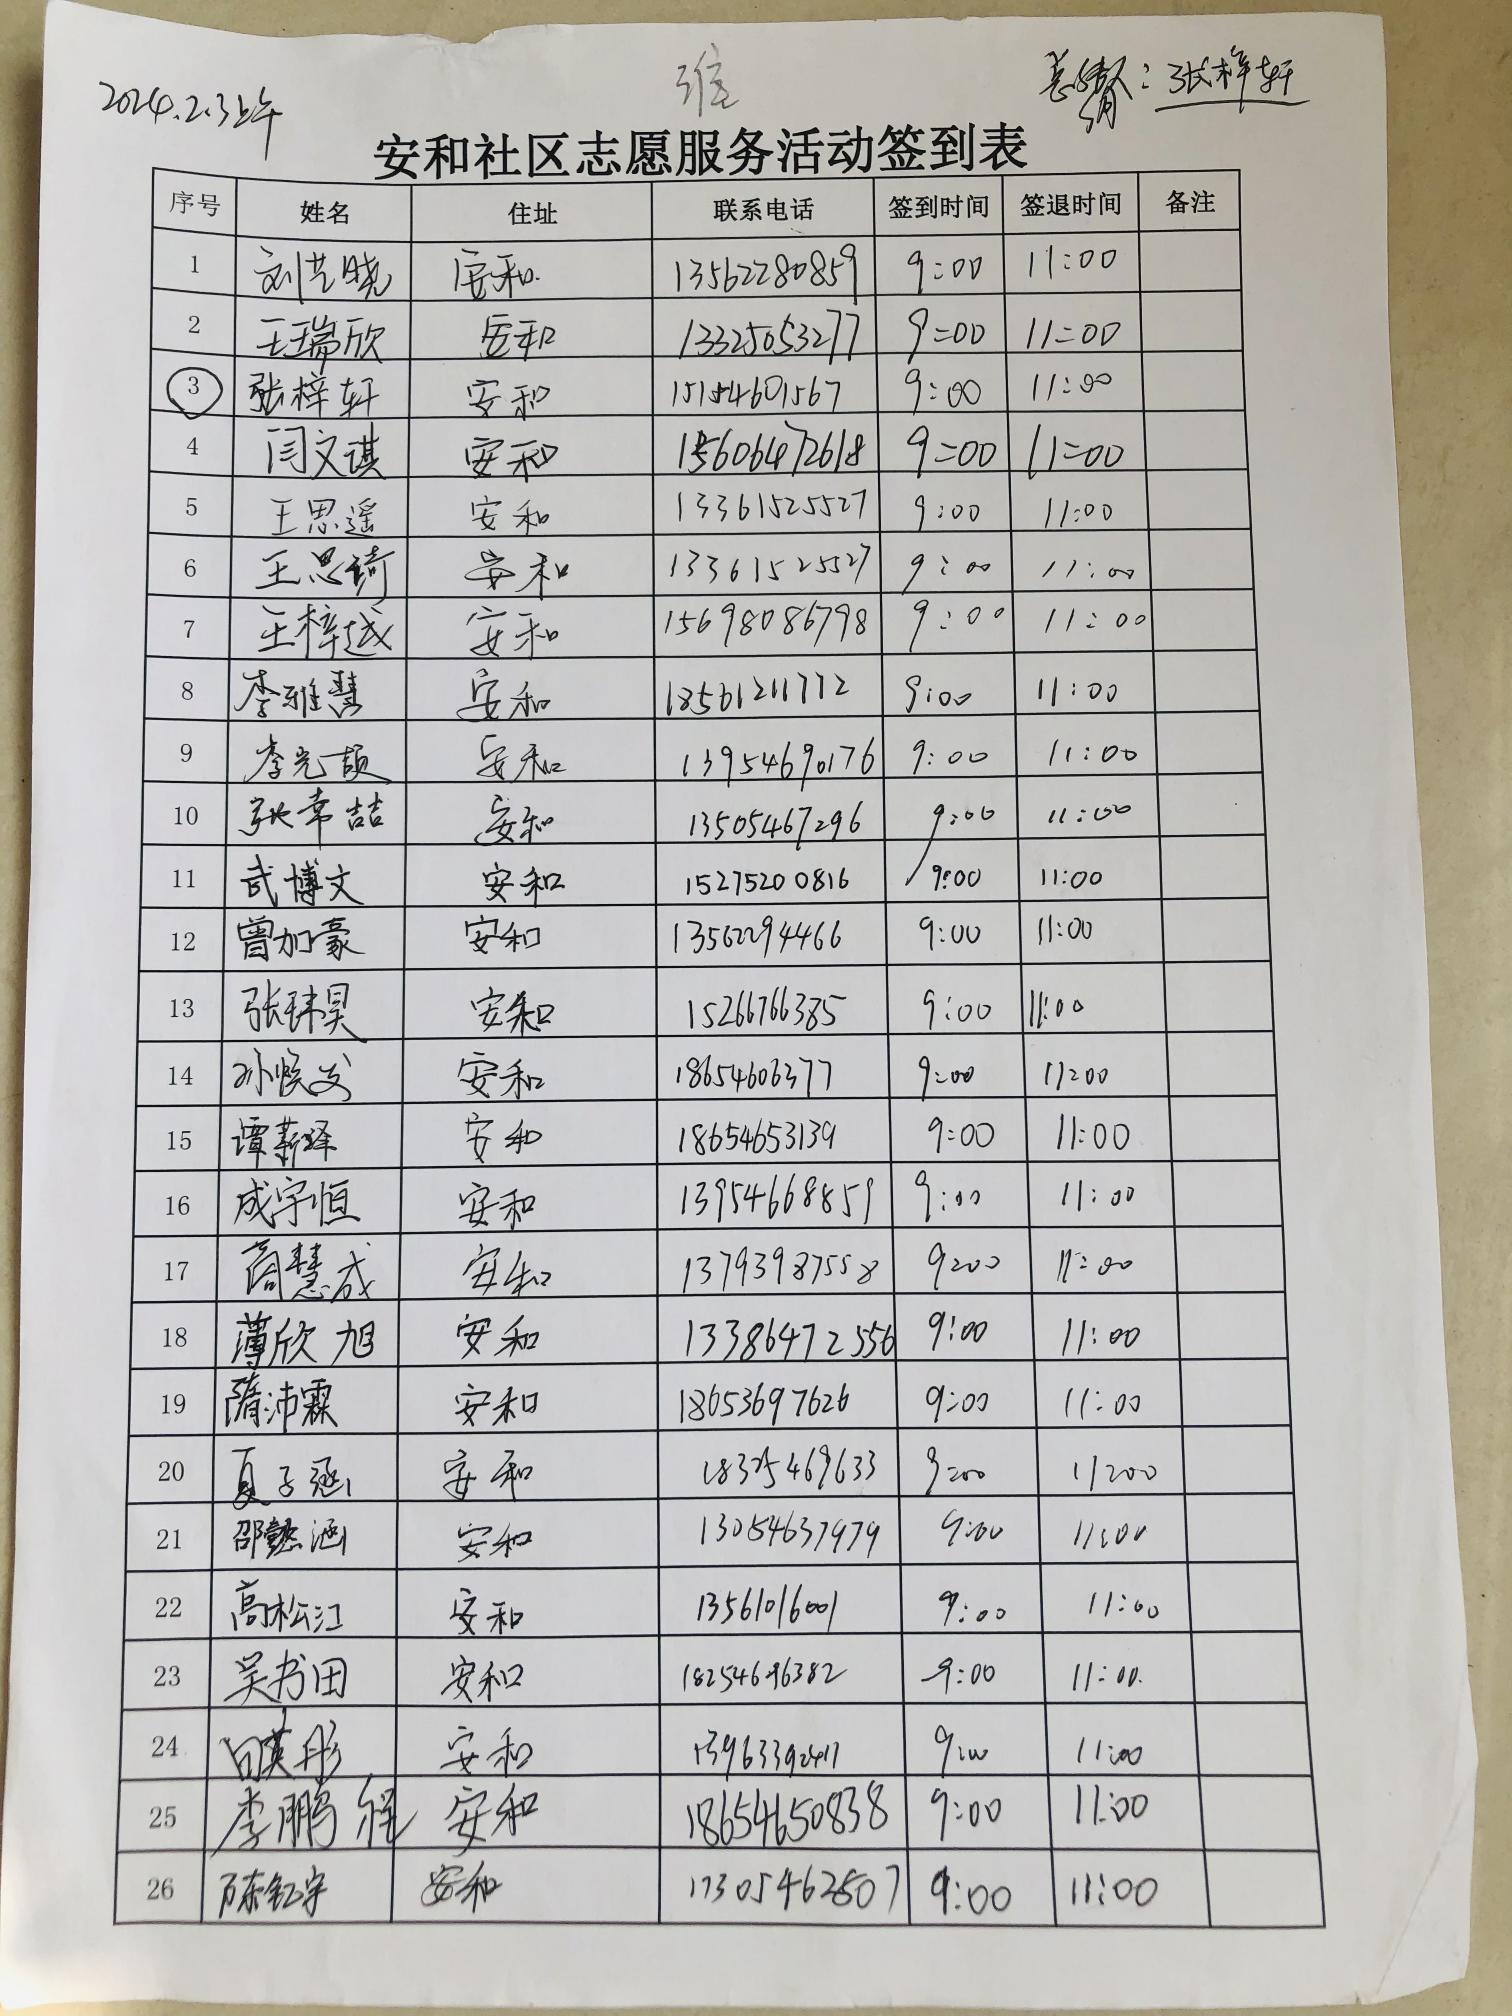 2024.2.3上午
负责人：张梓轩
安和社区志愿服务活动签到表
序号 姓名 住址 联系电话 签到时间 签退时间 备注
1 刘艺晓 安和 13562280859 9:00 11:00
2 王瑞欣 安和 13325053277 9:00 11:00
3 张梓轩 安和 15154601567 9:00 11:00
4 闫文祺 安和 15606472618 9:00 11:00
5 王思遥 安和 13361525527 9:00 11:00
6 王思琦 安和 13361525527 9:00 11:00
7 王梓越 安和 15698086798 9:00 11:00
8 李雅慧 安和 18561211772 9:00 11:00
9 安和 13954690176 9:00 11:00
10 张常喆 安和 13505467296 9:00 11:00
11 武博文 安和 15275200816 9:00 11:00
12 曾加豪 安和 13562294466 9:00 11:00
13 张玮昊 安和 15266766385 9:00 11:00
14 安和 18654606377 9:00 11:00
15 谭薪泽 安和 18654653139 9:00 11:00
16 成宇恒 安和 13954668859 9:00 11:00
17 商慧成 安和 13793987558 9:00 11:00
18 薄欣旭 安和 13386472556 9:00 11:00
19 隋沛霖 安和 18653697626 9:00 11:00
20 夏子涵 安和 18325469633 9:00 11:00
21 邵懿涵 安和 13054637979 9:00 11:00
22 高松江 安和 13561016001 9:00 11:00
23 吴书田 安和 18254696382 9:00 11:00
24 安和 9:00 11:00
25 李鹏程 安和 18654650838 9:00 11:00
26 陈钇宇 安和 17305462507 9:00 11:00